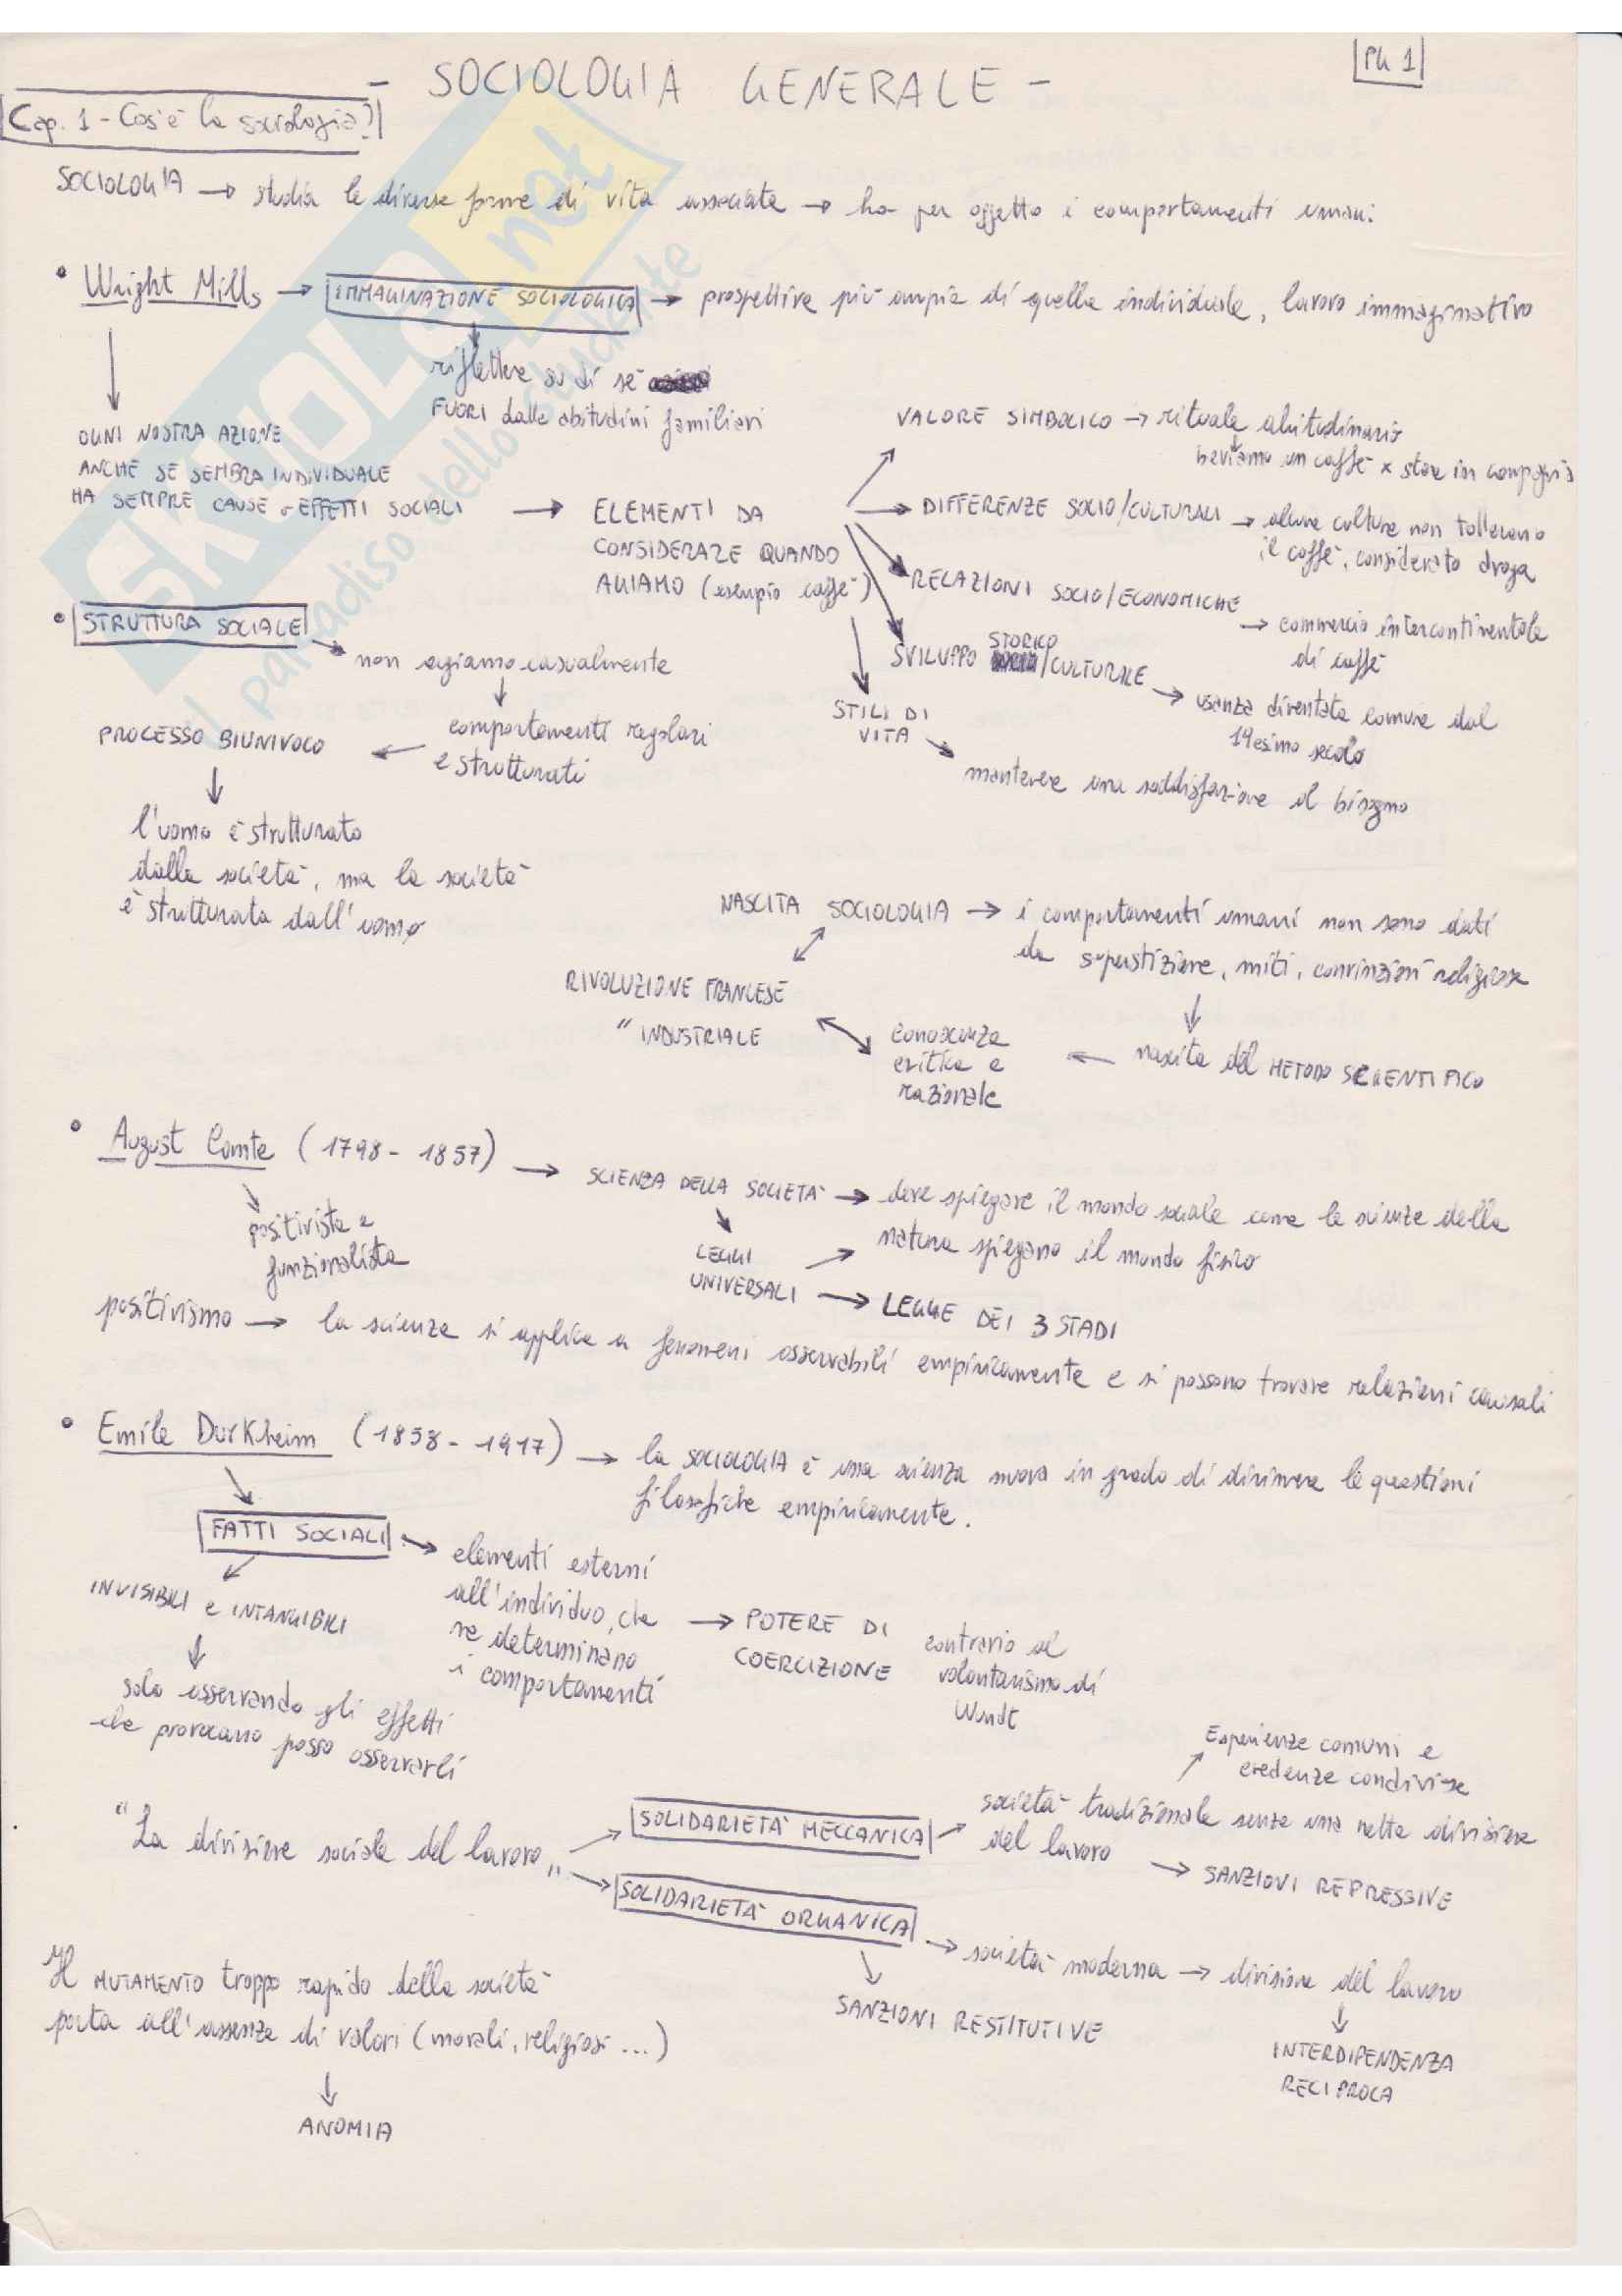 - SOCIOLOGIA GENERALE -
PG 1
Cap. 1 - Cos'è la sociologia?
SOCIOLOGIA → studia le diverse forme di vita associate → ha per oggetto i comportamenti umani
• Wright Mills → IMMAGINAZIONE SOCIOLOGICA → prospettive più ampie di quella individuale, lavoro immaginativo
↓
riflettere su di sé
FUORI dalle abitudini familiari
OGNI NOSTRA AZIONE
ANCHE SE SEMBRA INDIVIDUALE
HA SEMPRE CAUSE o EFFETTI SOCIALI → ELEMENTI DA
CONSIDERARE QUANDO
AGIAMO (esempio caffè)
VALORE SIMBOLICO → rituale abitudinario
↓
beviamo un caffè x stare in compagnia
→ DIFFERENZE SOCIO/CULTURALI → alcune culture non tollerano
il caffè, considerato droga
RELAZIONI SOCIO/ECONOMICHE
→ commercio intercontinentale
di caffè
SVILUPPO STORICO/CULTURALE
→ usanza diventata comune dal
19esimo secolo
STILI DI
VITA
→ mantenere una soddisfazione al bisogno
• STRUTTURA SOCIALE
→ non agiamo casualmente
↓
comportamenti regolari
e strutturati
← PROCESSO BIUNIVOCO
↓
l'uomo è strutturato
dalla società, ma la società
è strutturata dall'uomo
NASCITA SOCIOLOGIA → i comportamenti umani non sono dati
da superstizione, miti, convinzioni religiose
↓
nascita del METODO SCIENTIFICO
← conoscenza
critica e
razionale
RIVOLUZIONE FRANCESE
" INDUSTRIALE
• August Comte (1798 - 1857) → SCIENZA DELLA SOCIETÀ → deve spiegare il mondo sociale come le scienze della
natura spiegano il mondo fisico
positivista e
funzionalista
LEGGI
UNIVERSALI → LEGGE DEI 3 STADI
positivismo → la scienza si applica a fenomeni osservabili empiricamente e si possono trovare relazioni causali
• Emile Durkheim (1858 - 1917) → la SOCIOLOGIA è una scienza nuova in grado di dirimere le questioni
filosofiche empiricamente.
FATTI SOCIALI → elementi esterni
all'individuo, che
ne determinano
i comportamenti
→ POTERE DI
COERCIZIONE
contrario al
volontarismo di
Wundt
INVISIBILI e INTANGIBILI
↓
solo osservando gli effetti
che provocano posso osservarli
"La divisione sociale del lavoro"
SOLIDARIETÀ MECCANICA → società tradizionale senza una netta divisione
del lavoro → SANZIONI REPRESSIVE
Esperienze comuni e
credenze condivise
SOLIDARIETÀ ORGANICA → società moderna → divisione del lavoro
↓
INTERDIPENDENZA
RECIPROCA
SANZIONI RESTITUTIVE
Il MUTAMENTO troppo rapido della società
porta all'assenza di valori (morali, religiosi ...)
↓
ANOMIA
SKUOLA.net
il paradiso dello studente